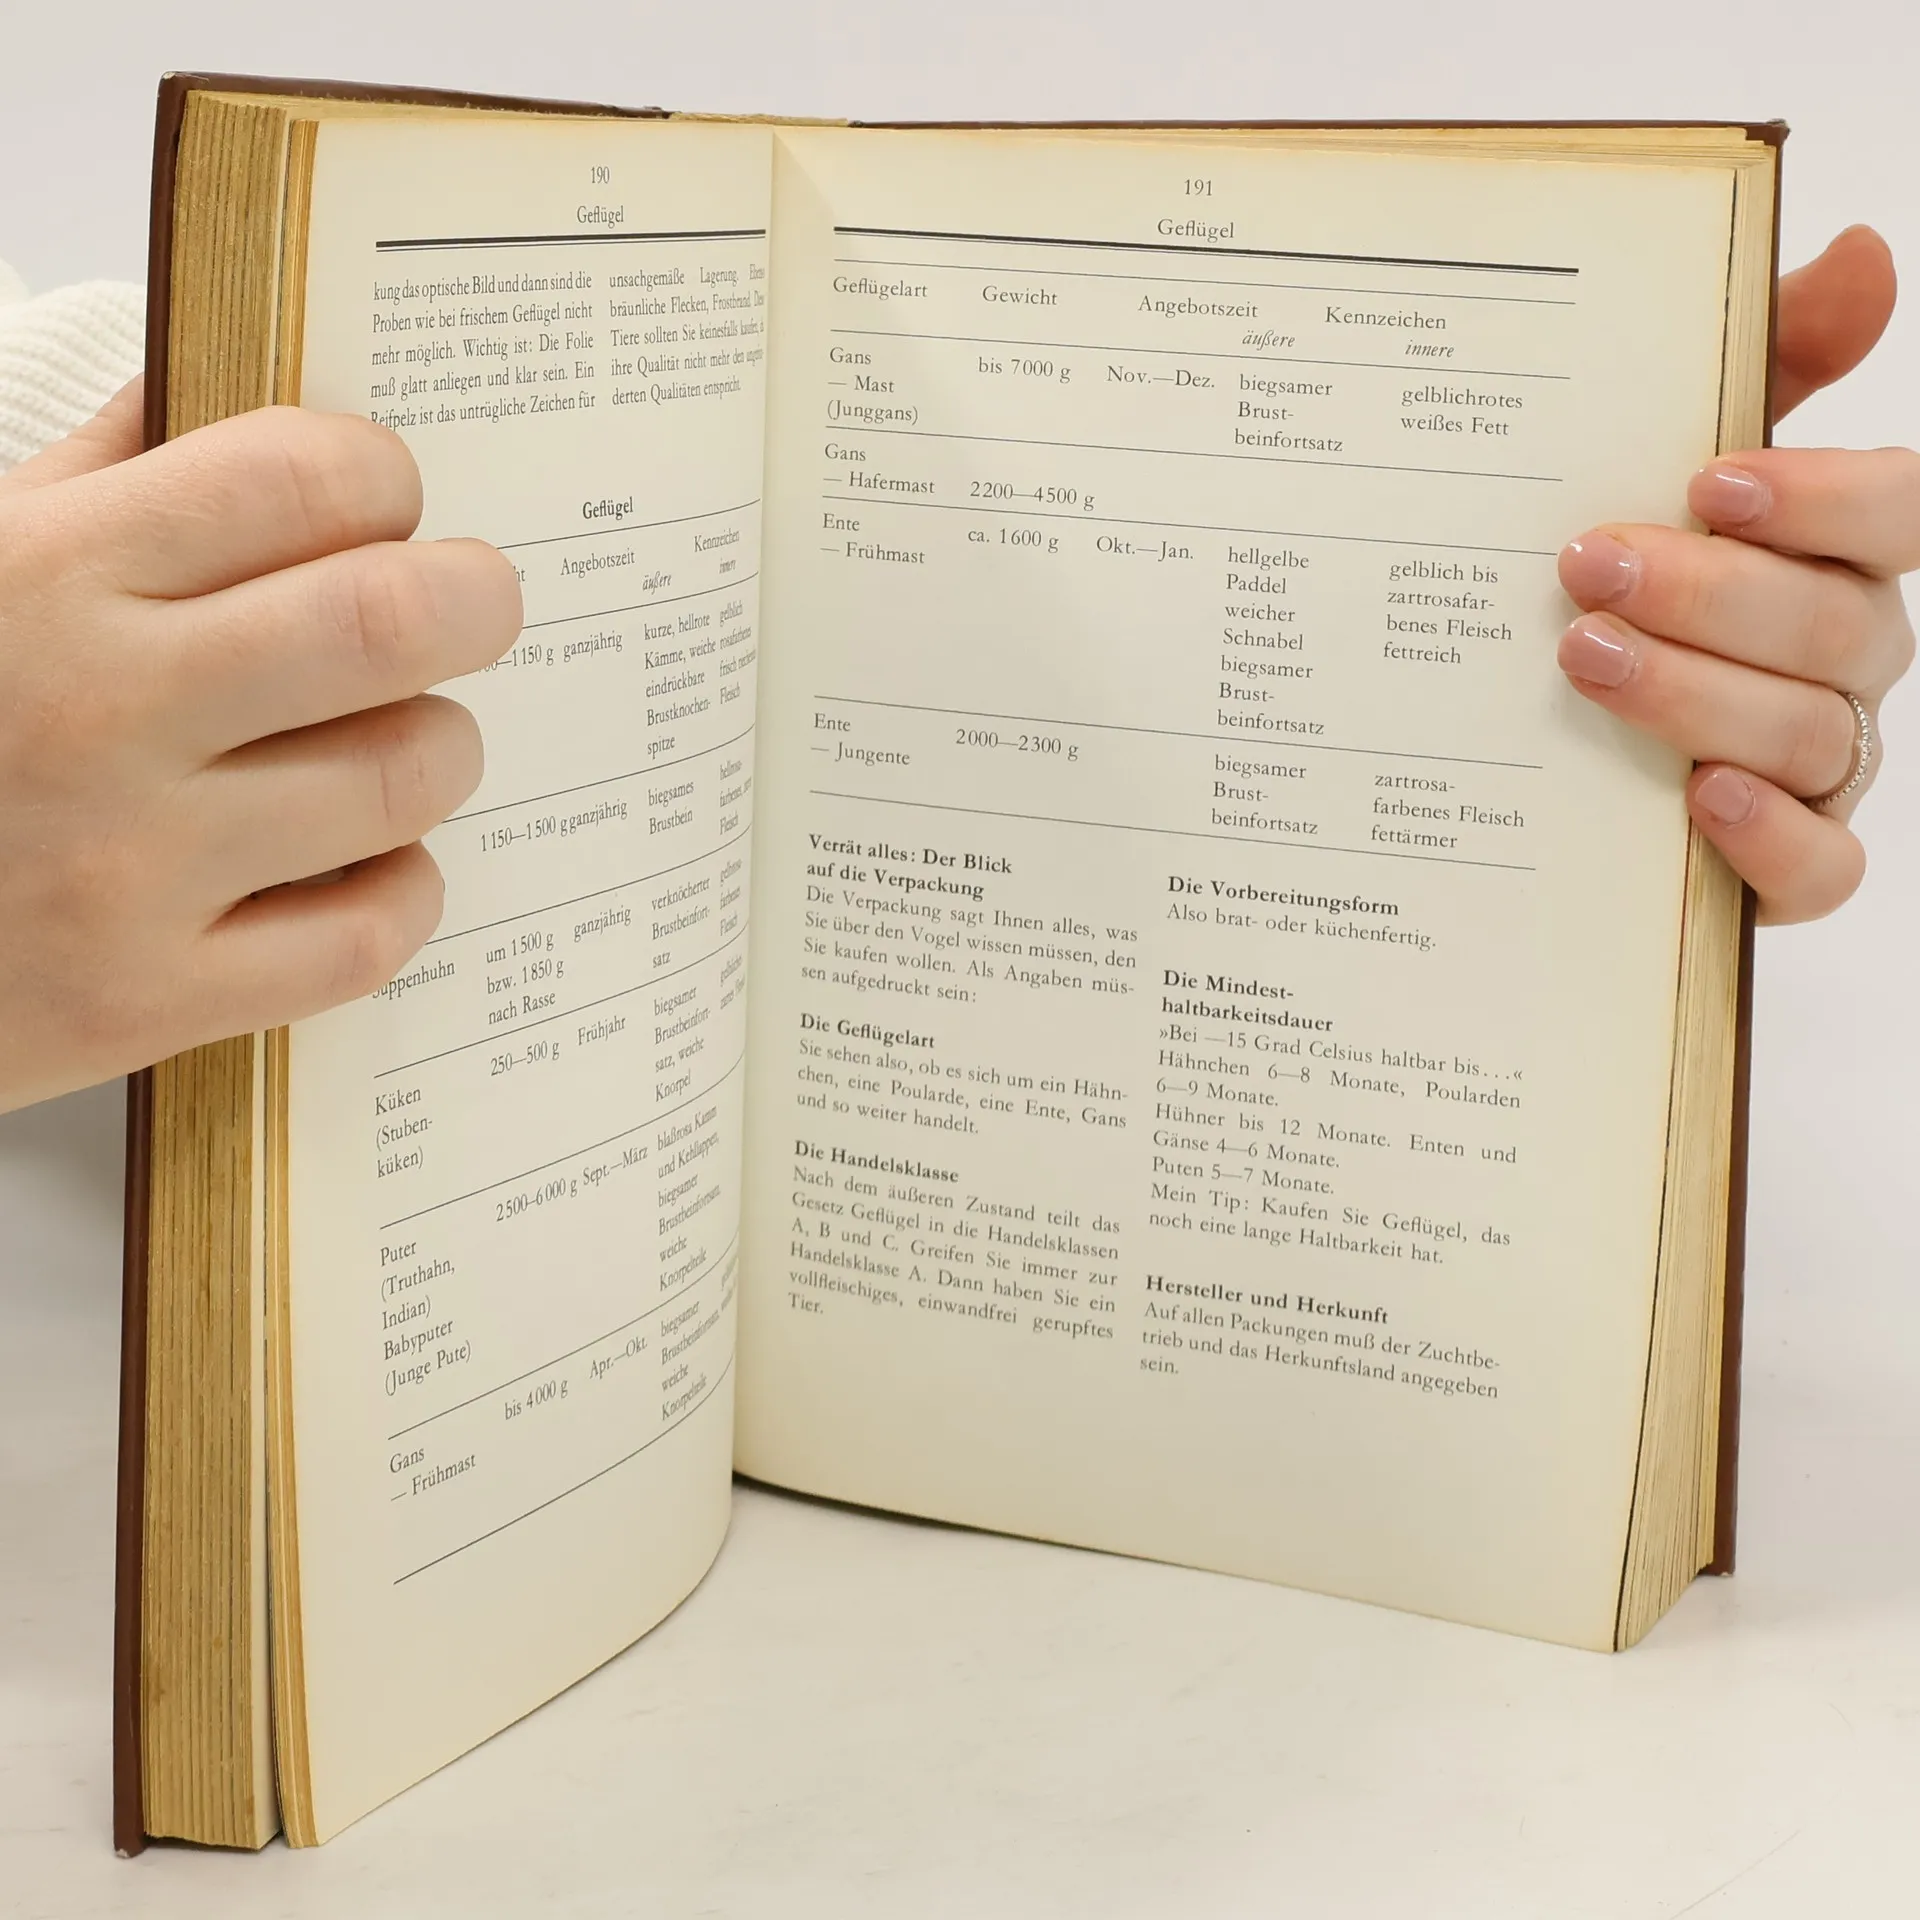 190
Geflügel
kung das optische Bild und dann sind die
Proben wie bei frischem Geflügel nicht
mehr möglich. Wichtig ist: Die Folie
muß glatt anliegen und klar sein. Ein
Reifpelz ist das untrügliche Zeichen für
unsachgemäße Lagerung.
bräunliche Flecken, Frostbrand.
Tiere sollten Sie keinesfalls kaufen,
ihre Qualität nicht mehr den
derten Qualitäten entspricht.
Geflügel
Angebotszeit Kennzeichen
äußere innere
1150 g ganzjährig kurze, hellrote gelblich
Kämme, weiche rosafarbenes
eindrückbare frisch
Brustknochen- Fleisch
spitze
1150—1500 g ganzjährig biegsames
Brustbein Fleisch
Suppenhuhn um 1500 g ganzjährig verknöcherter
bzw. 1850 g Brustbeinfort-
nach Rasse satz Fleisch
Küken 250—500 g Frühjahr biegsamer
(Stuben- Brustbeinfort-
küken) satz, weiche
Knorpel
Puter 2500—6000 g Sept.—März blaßrosa Kamm
(Truthahn, und Kehllappen,
Indian) biegsamer
Babyputer Brustbeinfortsatz,
(Junge Pute) weiche
Knorpelteile
Gans bis 4000 g Apr.—Okt. biegsamer
— Frühmast Brustbeinfortsatz,
weiche
Knorpelteile
191
Geflügel
Geflügelart Gewicht Angebotszeit Kennzeichen
äußere innere
Gans bis 7000 g Nov.—Dez. biegsamer gelblichrotes
— Mast Brust- weißes Fett
(Junggans) beinfortsatz
Gans
— Hafermast 2200—4500 g
Ente ca. 1600 g Okt.—Jan. hellgelbe gelblich bis
— Frühmast Paddel zartrosafar-
weicher benes Fleisch
Schnabel fettreich
biegsamer
Brust-
beinfortsatz
Ente 2000—2300 g biegsamer zartrosa-
— Jungente Brust- farbenes Fleisch
beinfortsatz fettärmer
Verrät alles: Der Blick
auf die Verpackung
Die Verpackung sagt Ihnen alles, was
Sie über den Vogel wissen müssen, den
Sie kaufen wollen. Als Angaben müs-
sen aufgedruckt sein:
Die Geflügelart
Sie sehen also, ob es sich um ein Hähn-
chen, eine Poularde, eine Ente, Gans
und so weiter handelt.
Die Handelsklasse
Nach dem äußeren Zustand teilt das
Gesetz Geflügel in die Handelsklassen
A, B und C. Greifen Sie immer zur
Handelsklasse A. Dann haben Sie ein
vollfleischiges, einwandfrei gerupftes
Tier.
Die Vorbereitungsform
Also brat- oder küchenfertig.
Die Mindest-
haltbarkeitsdauer
»Bei —15 Grad Celsius haltbar bis...«
Hähnchen 6—8 Monate, Poularden
6—9 Monate.
Hühner bis 12 Monate. Enten und
Gänse 4—6 Monate.
Puten 5—7 Monate.
Mein Tip: Kaufen Sie Geflügel, das
noch eine lange Haltbarkeit hat.
Hersteller und Herkunft
Auf allen Packungen muß der Zuchtbe-
trieb und das Herkunftsland angegeben
sein.